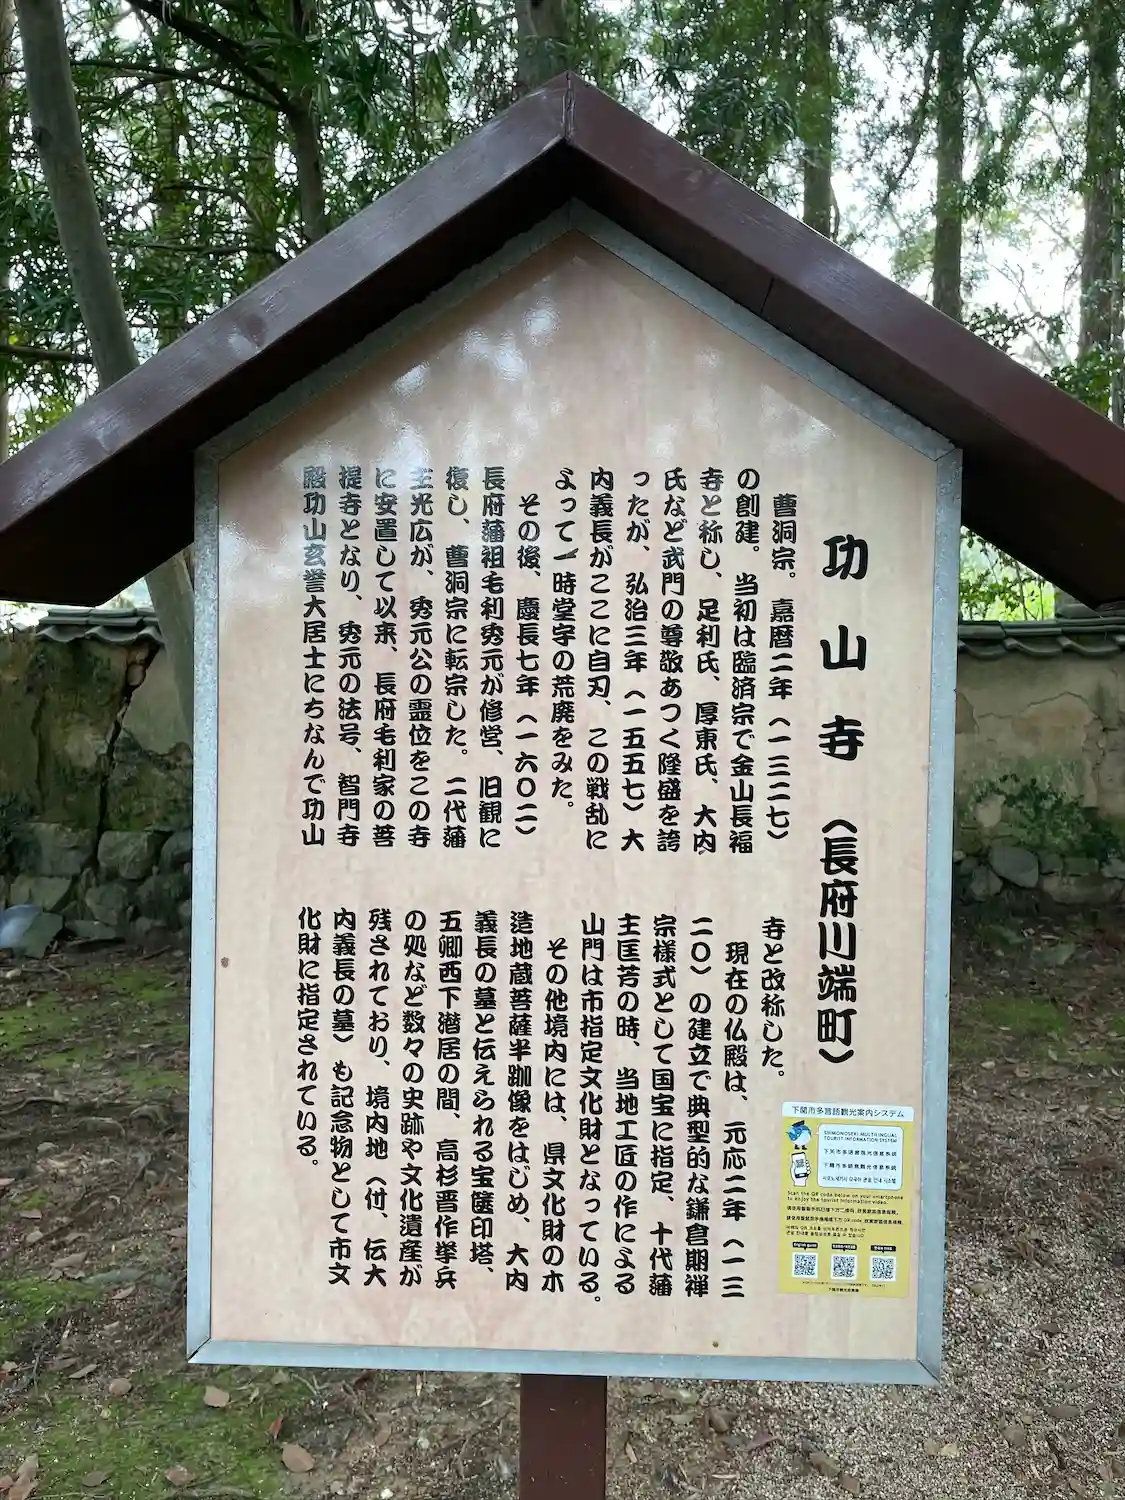 功山寺（長府川端町）
曹洞宗。嘉暦二年（一三二七）
の創建。当初は臨済宗で金山長福
寺と称し、足利氏、厚東氏、大内
氏など武門の尊敬あつく隆盛を誇
ったが、弘治三年（一五五七）大
内義長がここに自刃、この戦乱に
よって一時堂宇の荒廃をみた。
その後、慶長七年（一六〇二）
長府藩祖毛利秀元が修営、旧観に
復し、曹洞宗に転宗した。二代藩
主光広が、秀元公の霊位をこの寺
に安置して以来、長府毛利家の菩
提寺となり、秀元の法号、智門寺
殿功山玄誉大居士にちなんで功山
寺と改称した。
現在の仏殿は、元応二年（一三
二〇）の建立で典型的な鎌倉期禅
宗様式として国宝に指定、十代藩
主匡芳の時、当地工匠の作による
山門は市指定文化財となっている。
その他境内には、県文化財の木
造地蔵菩薩半跏像をはじめ、大内
義長の墓と伝えられる宝篋印塔、
五卿西下潜居の間、高杉晋作挙兵
の処など数々の史跡や文化遺産が
残されており、境内地（付、伝大
内義長の墓）も記念物として市文
化財に指定されている。
下関市多言語観光案内システム
SHIMONOSEKI MULTILINGUAL
TOURIST INFORMATION SYSTEM
下关市多语言观光信息系统
下關市多語言觀光信息系統
Scan the QR code below on your smartphone
to enjoy the tourist information video.